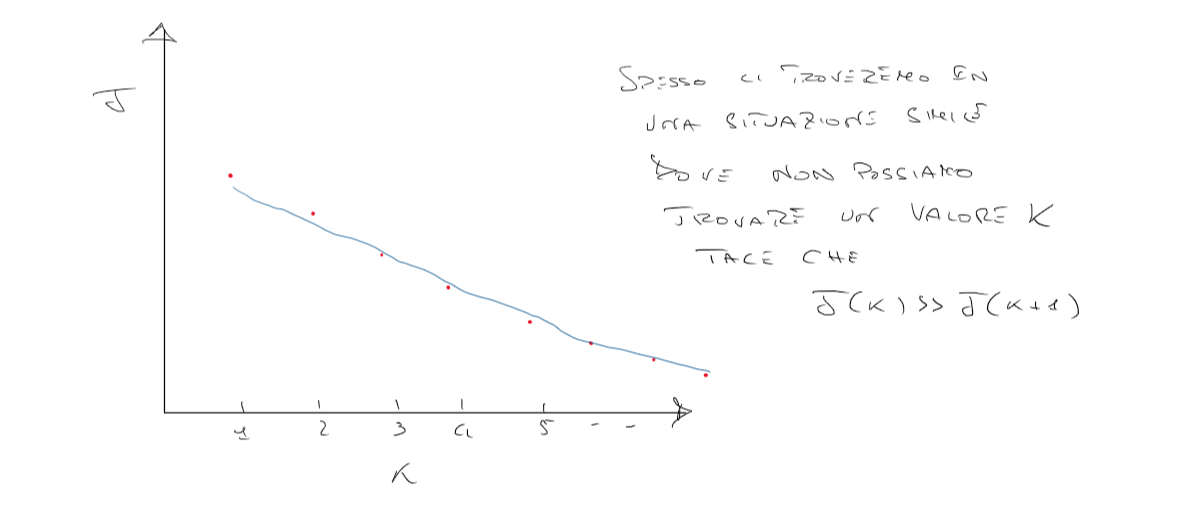 J
SPESSO CI TROVEREMO IN
UNA SITUAZIONE SIMILE
DOVE NON POSSIAMO
TROVARE UN VALORE K
TALE CHE
J(K) >> J(K+1)
1 2 3 4 5 - -
K